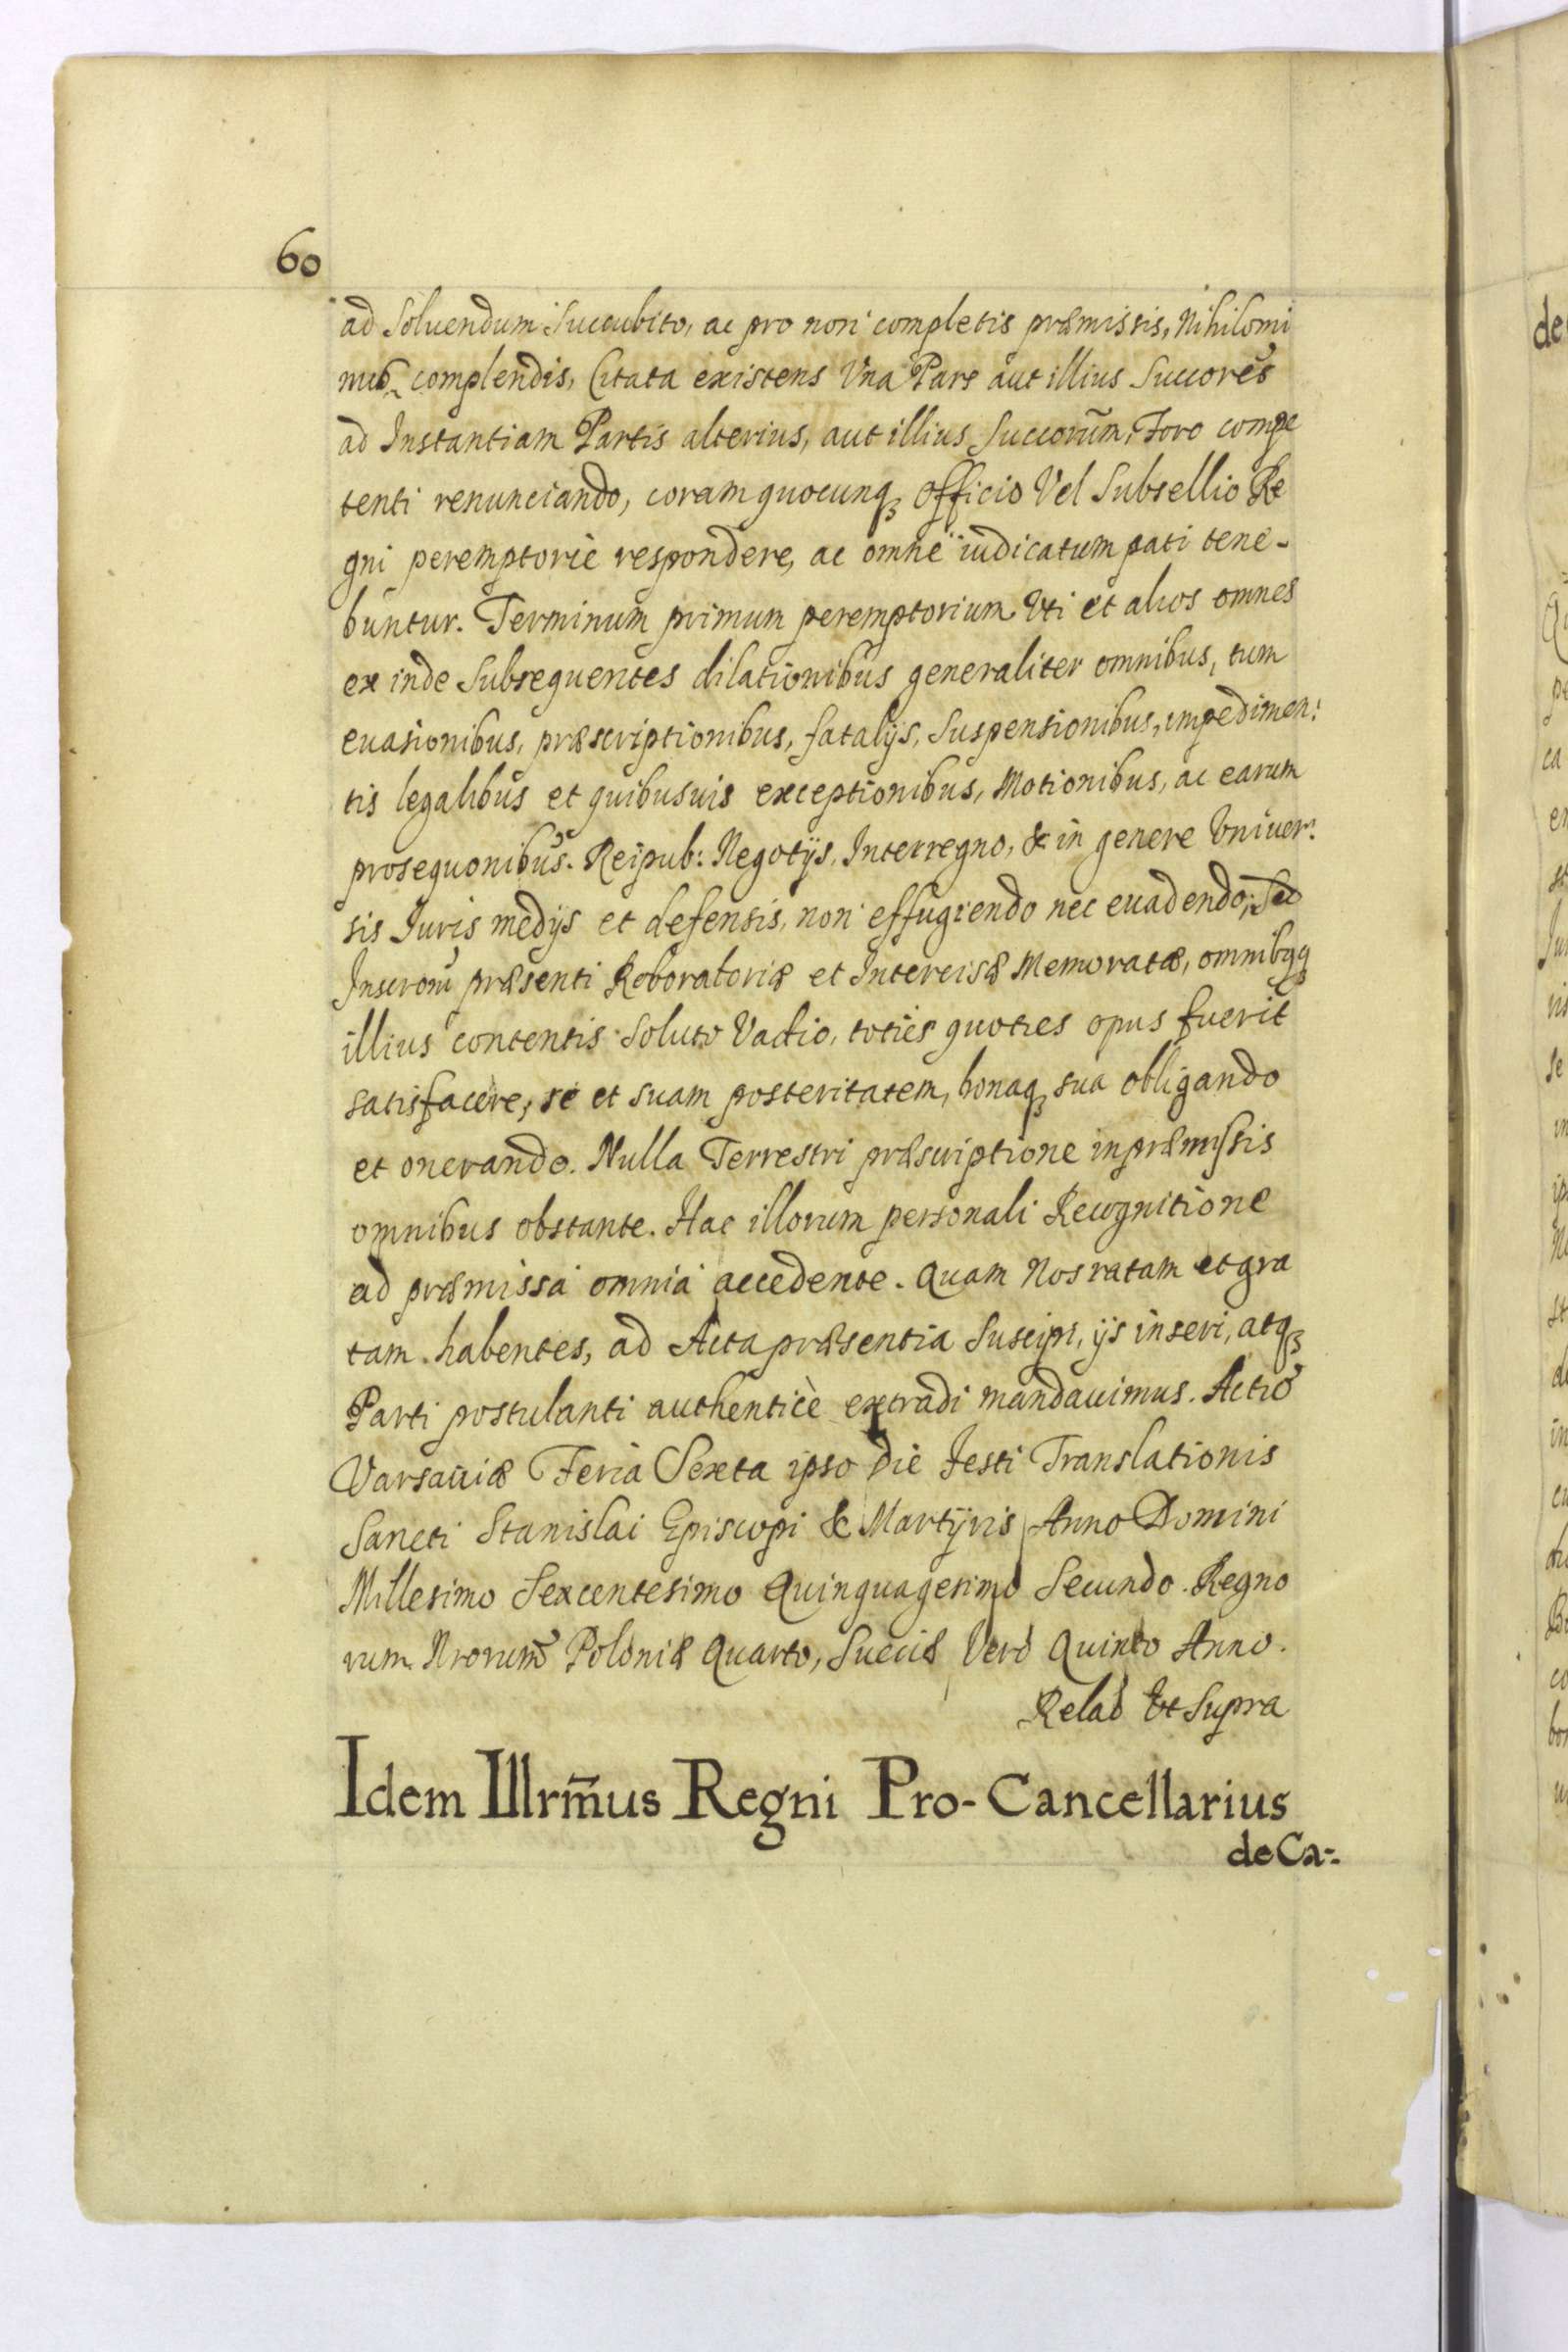 60
ad Soluendum Succubito, ac pro non completis præmissis, Nihilomi
nus complendis, Citata existens Vna Pars aut illius Succores
ad Instantiam Partis alterius, aut illius Succorum, Foro compe
tenti renunciando, coram quocunq₃ Officio Vel Subsellio Re
gni peremptoriè respondere, ac omne iudicatum pati tene-
buntur. Terminum primum peremptorium Vti et alios omnes
ex inde Subsequentes dilationibus generaliter omnibus, tum
euasionibus, præscriptionibus, fatalijs, Suspensionibus, impedimen:
tis legalibus et quibusuis exceptionibus, Motionibus, ac earum
prosequonibus. Reipub: Negotijs, Interregno, & in genere Vniuer:
sis Iuris medijs et defensis, non effugiendo nec euadendo; Sed
Inscroni præsenti Roboratoriæ et Intercisæ Memoratæ, omnibqq₃
illius contentis Soluto Vadio, toties quoties opus fuerit
satisfacere, se et suam posteritatem, bonaq₃ sua obligando
et onerando. Nulla Terrestri præscriptione in præmissis
omnibus obstante. Hac illorum personali Recognitione
ad præmissa omnia accedente. Quam Nos ratam et gra
tam habentes, ad Acta præsentia Suscipi, ijs inseri, atq₃
Parti postulanti authenticè extradi mandauimus. Actio
Varsauiæ Feria Sexta ipso Die Festi Translationis
Sancti Stanislai Episcopi & Martijris Anno Domini
Millesimo Sexcentesimo Quinquagesimo Secundo. Regno
rum Nrorum Poloniæ Quarto, Sueciæ Vero Quinto Anno.
Relaô Vt Supra
Idem Illrm̃us Regni Pro-Cancellarius
de Ca-: